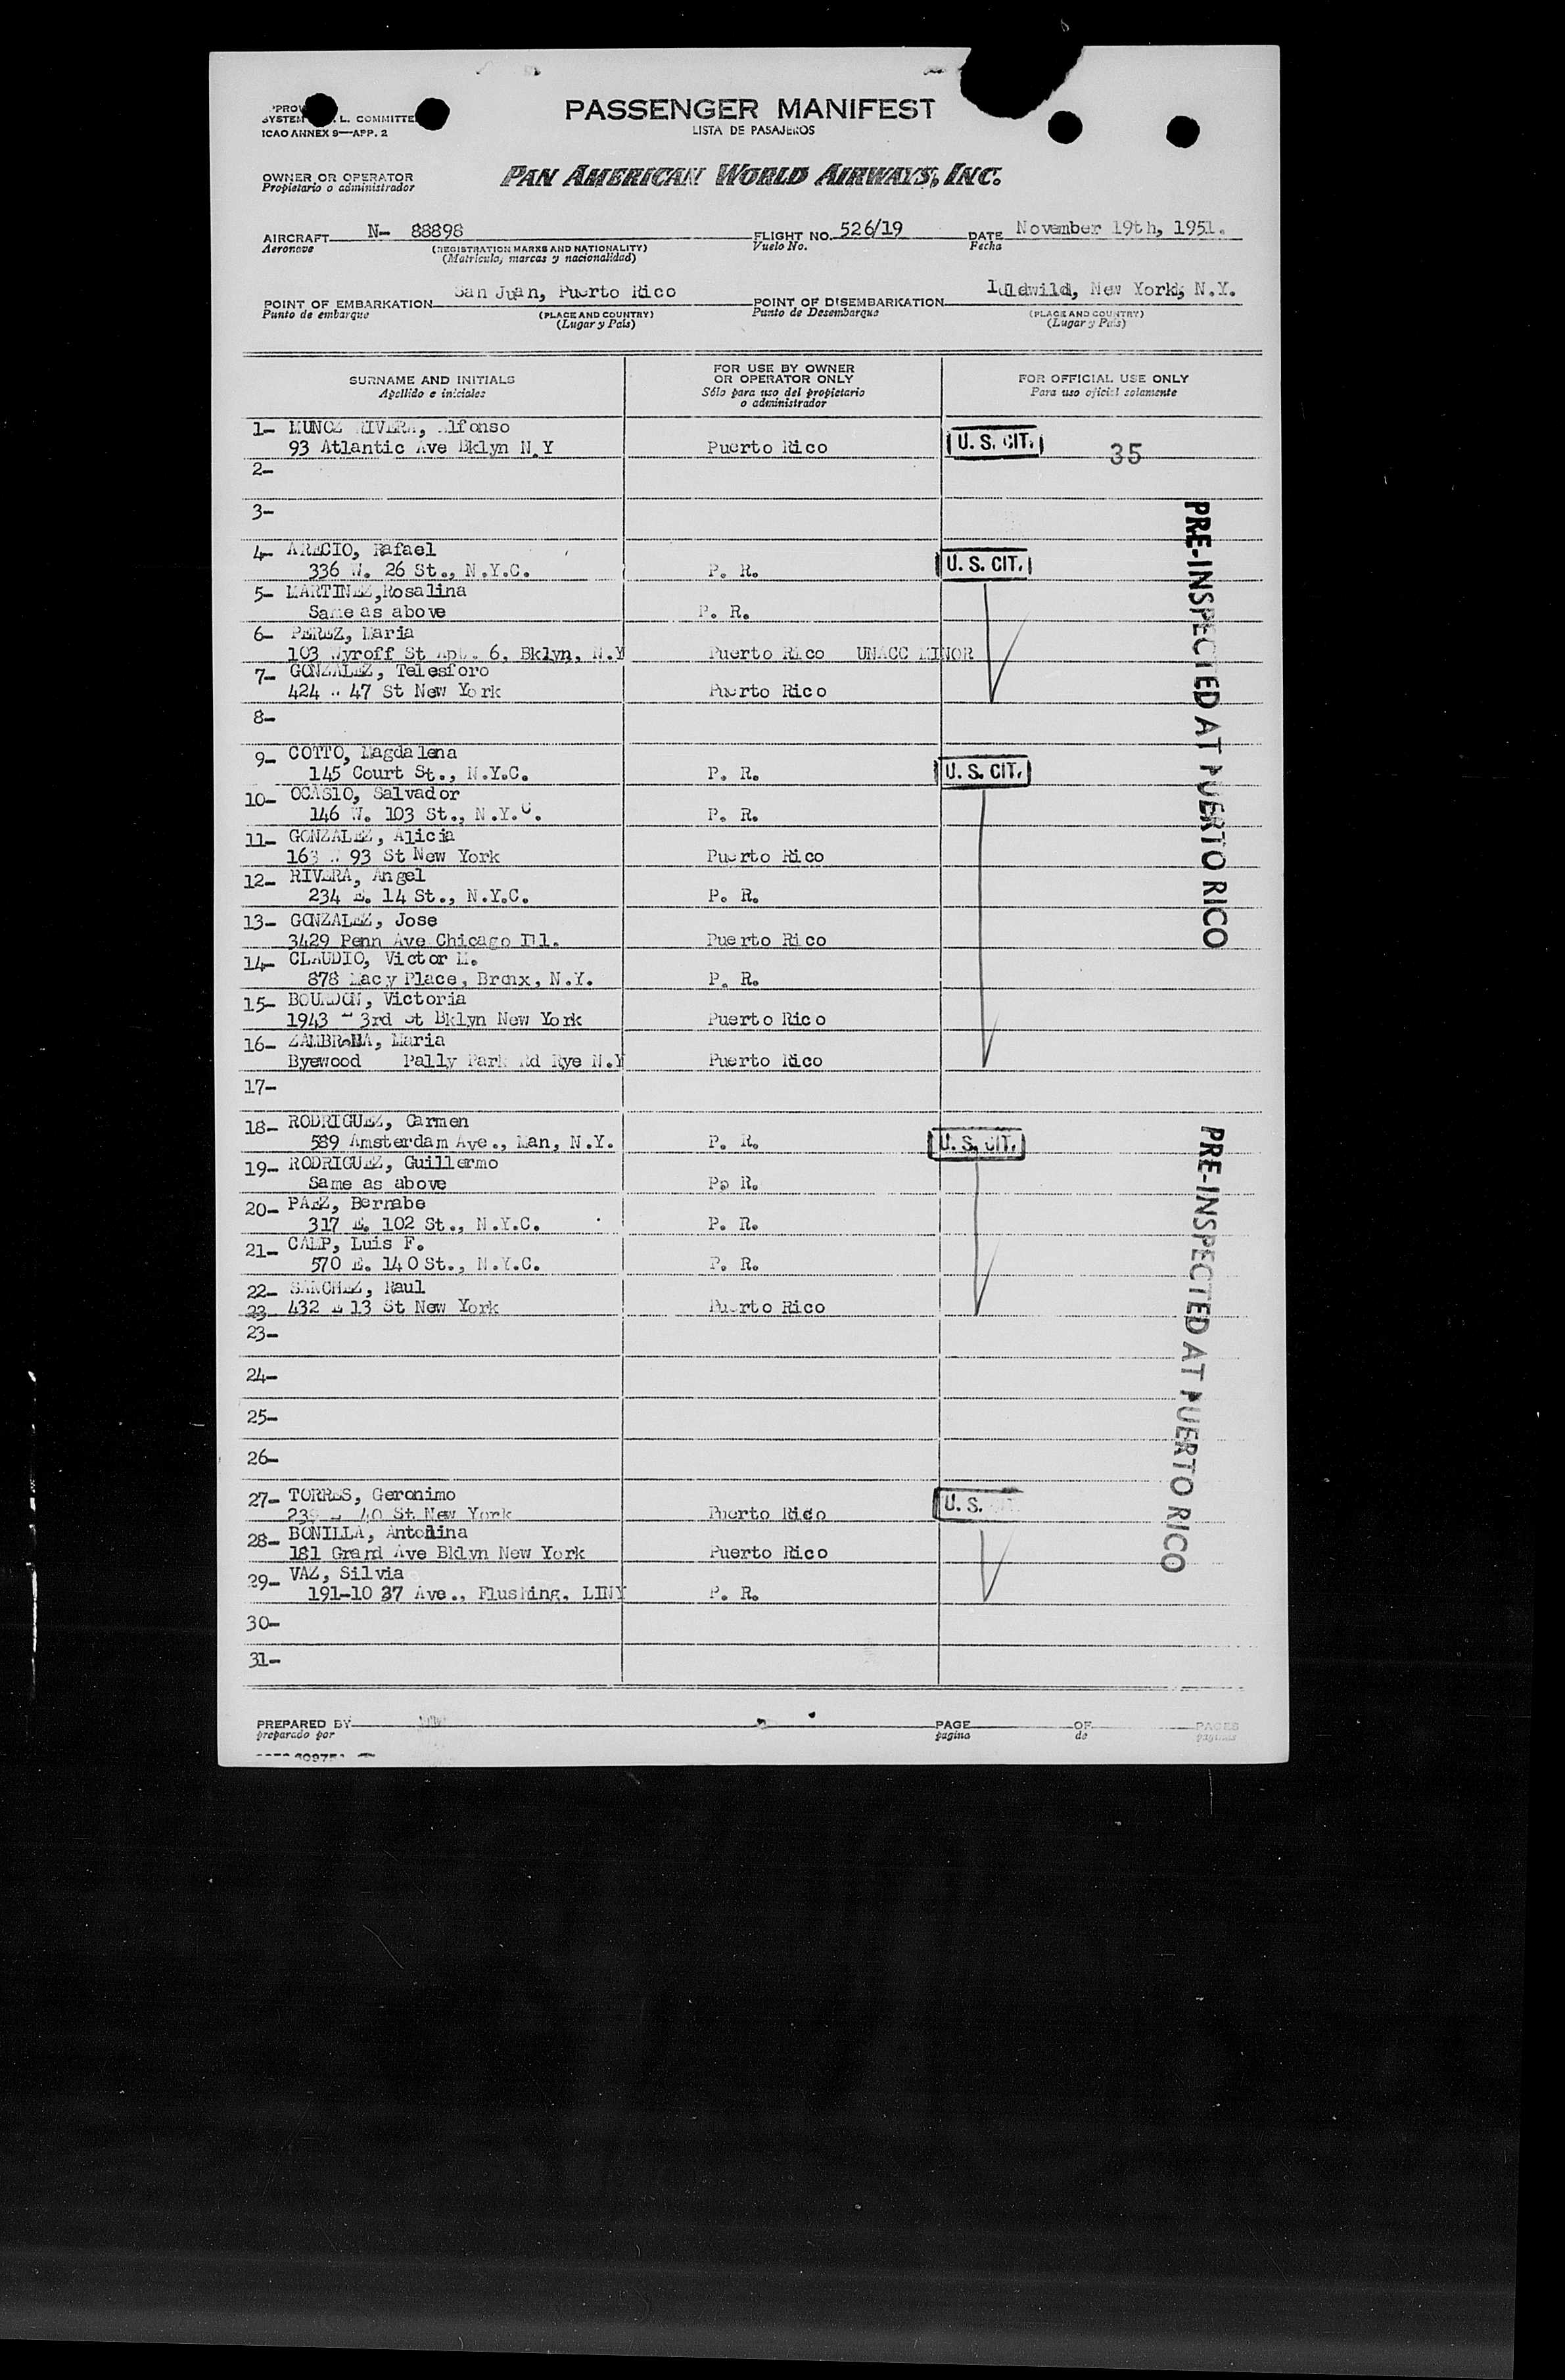 PASSENGER MANIFEST
LISTA DE PASAJEROS
SYSTEM L. COMMITTE
ICAO ANNEX 9—APP. 2
OWNER OR OPERATOR
Propietario o administrador
PAN AMERICAN WORLD AIRWAYS, INC.
AIRCRAFT N- 88898 FLIGHT NO. 526/19 DATE November 19th, 1951.
Aeronave (REGISTRATION MARKS AND NATIONALITY) Vuelo No. Fecha
(Matricula, marcas y nacionalidad)
POINT OF EMBARKATION San Juan, Puerto Rico POINT OF DISEMBARKATION Idlewild, New York, N.Y.
Punto de embarque (PLACE AND COUNTRY) Punto de Desembarque (PLACE AND COUNTRY)
(Lugar y País) (Lugar y País)
SURNAME AND INITIALS FOR USE BY OWNER OR OPERATOR ONLY FOR OFFICIAL USE ONLY
Apellido e iniciales Sólo para uso del propietario o administrador Para uso oficial solamente
1- MUNOZ RIVERA, Alfonso
93 Atlantic Ave Bklyn N.Y Puerto Rico U. S. CIT. 35
2-
3-
4- ARECIO, Rafael
336 W. 26 St., N.Y.C. P. R. U. S. CIT.
5- MARTINEZ,Rosalina
Same as above P. R.
6- PEREZ, Maria
103 Wyroff St Apt. 6, Bklyn, N.Y Puerto Rico UNACC MINOR
7- GONZALEZ, Telesforo
424 47 St New York Puerto Rico
8-
9- COTTO, Magdalena
145 Court St., N.Y.C. P. R. U. S. CIT.
10- OCASIO, Salvador
146 W. 103 St., N.Y.C. P. R.
11- GONZALEZ, Alicia
163 W 93 St New York Puerto Rico
12- RIVERA, Angel
234 E. 14 St., N.Y.C. P. R.
13- GONZALEZ, Jose
3429 Penn Ave Chicago Ill. Puerto Rico
14- CLAUDIO, Victor M.
878 Macy Place, Bronx, N.Y. P. R.
15- BOURDON, Victoria
1943 3rd St Bklyn New York Puerto Rico
16- ZAMBRANA, Maria
Byewood Pally Park Rd Rye N.Y Puerto Rico
17-
18- RODRIGUEZ, Carmen
589 Amsterdam Ave., Man, N.Y. P. R. U. S. CIT.
19- RODRIGUEZ, Guillermo
Same as above Pp R.
20- PAEZ, Bernabe
317 E. 102 St., N.Y.C. P. R.
21- CALP, Luis F.
570 E. 140 St., N.Y.C. P. R.
22- SANCHEZ, Raul
23 432 E 13 St New York Puerto Rico
23-
24-
25-
26-
27- TORRES, Geronimo
40 St New York Puerto Rico U. S.
28- BONILLA, Antolina
181 Grand Ave Bklyn New York Puerto Rico
29- VAZ, Silvia
191-10 37 Ave., Flushing, LINY P. R.
30-
31-
PRE-INSPECTED AT PUERTO RICO
PRE-INSPECTED AT PUERTO RICO
PREPARED BY PAGE OF PAGES
preparado por pagina de paginas